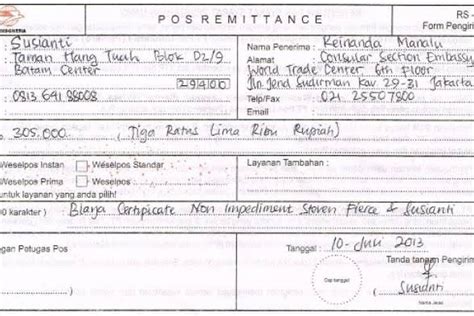 POS REMITTANCE
RS
Form Pengiri
: Susianti
Nama Penerima : Reinanda Manalu
: Taman Hang Tuah Blok D2/9
Alamat : Consular Section Embassy
Batam Center
World Trade Center 6th Floor
29400
Jln Jend Sudirman Kav 29-31 Jakarta
: 0813 691 88008
Telp/Fax : 021 25507800
Email :
305.000 , (Tiga Ratus Lima Ribu Rupiah)
Weselpos Instan
Weselpos Standar
Layanan Tambahan :
Weselpos Prima
Weselpos
untuk layanan yang anda pilih!
karakter) : Biaya Certipicate Non Impediment Steven Fierce & Susianti
gan Petugas Pos
Tanggal : 10-Juli 2013
Tanda tangan Pengirim
Cap tanggal
Susianti
Nama Jelas